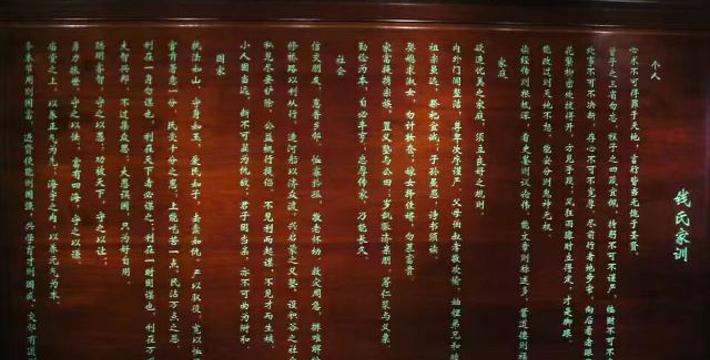 钱氏家训
个人
心术不可得罪于天地，言行皆当无愧于圣贤。
曾子之三省勿忘，程子之四箴宜佩。持躬不可不谨严，临财不可不
处事不可不决断，存心不可不宽厚。尽前行者地步窄，向后看者眼
花繁柳密处拨得开，方见手段。风狂雨骤时立得定，才是脚跟。
能改过则天地不怒，能安分则鬼神无权。
读经传则根柢深，看史鉴则议论伟。能文章则称述多，蓄道德则福
家庭
欲造优美之家庭，须立良好之规则。
内外门闾整洁，尊卑次序谨严。父母伯叔孝敬欢愉，妯娌弟兄和睦
祖宗虽远，祭祀宜诚，子孙虽愚，诗书须读。
娶媳求淑女，勿计妆奁。嫁女择佳婿，勿慕富贵。
家富提携宗族，置义塾与公田。岁饥赈济亲朋，筹仁浆与义粟。
勤俭为本，自必丰亨。忠厚传家，乃能长久。
社会
信交朋友，惠普乡邻。恤寡矜孤，敬老怀幼。救灾周急，排难解
修桥路以利从行，造河船以济众渡。兴启蒙之义塾，设积谷之社
私见尽要铲除，公益概行提倡。不见利而起谋，不见才而生嫉。
小人固当远，断不可显为仇敌。君子固当亲，亦不可曲为附和。
国家
执法如山，守身如玉，爱民如子，去蠹如仇。严以驭役，宽以恤
官肯著意一分，民受十分之惠。上能吃苦一点，民沾万点之恩。
利在一身勿谋也，利在天下者必谋之；利在一时固谋也，利在万
大智兴邦，不过集众思；大愚误国，只为好自用。
聪明睿智，守之以愚；功被天下，守之以让；
勇力振世，守之以怯；富有四海，守之以谦。
庙堂之上，以养正气为先。海宇之内，以养元气为本。
务本节用则国富，进贤使能则国强，兴学育才则国盛，交邻有道